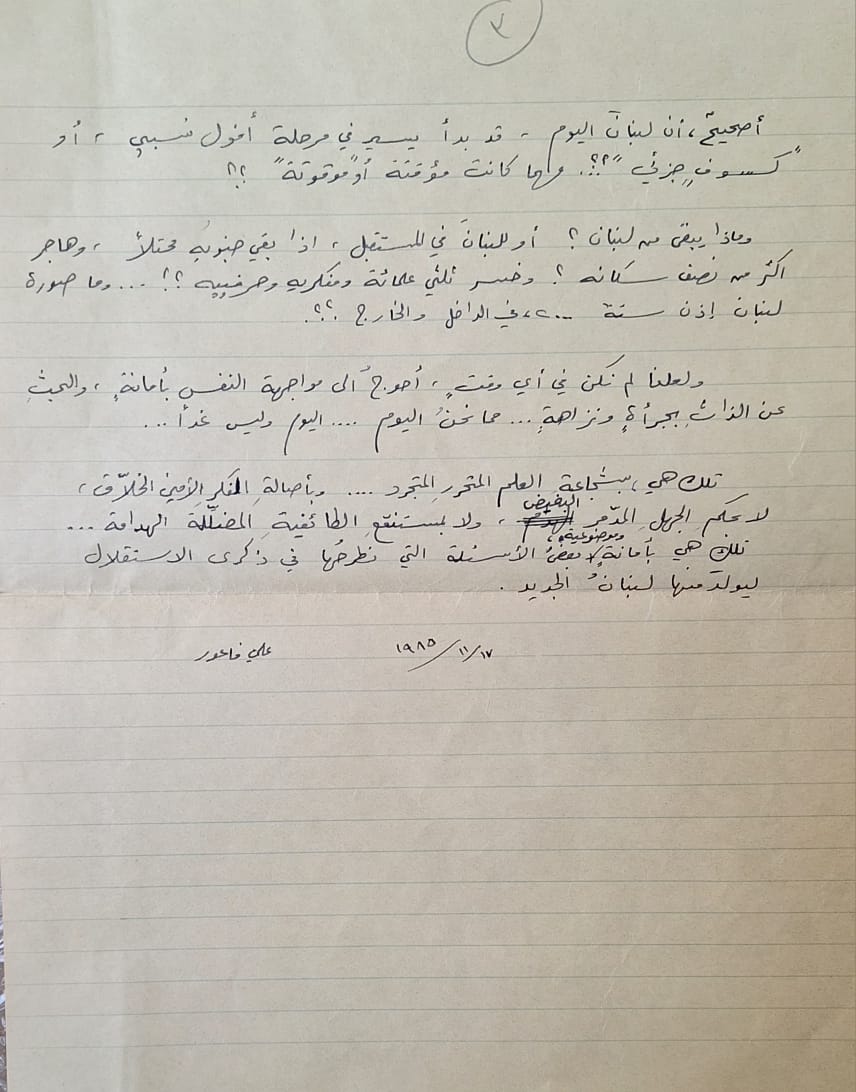 ٣
أصحيحٌ، أن لبنانَ اليوم، قد بدأ يسير في مرحلة أفول نسبي، أو
"كسوفٍ جزئي"؟؟. مهما كانت مؤقتة أو "موقوتة" ؟؟
وماذا يبقى من لبنان؟ أو للبنانَ في المستقبل، اذا بقي جنوبه محتلاً، وهاجر
اكثر من نصف سكانه؟ وخسر ثلثي علمائه ومفكريه وحرفييه؟؟... وما صورة
لبنان إذن سنة ٢٠٠٠، في الداخل والخارج؟؟.
ولعلنا لم نكن في أي وقتٍ، أحوجُ الى مواجهة النفس بأمانةٍ، والبحثِ
عن الذاتِ بجرأةٍ ونزاهةٍ... مما نحنُ اليوم .... اليوم وليس غداً...
تلك هي، بشجاعة العلم المتحرر المتجرد .... وبأصالةِ الفكرِ الأمين الخلاّق،
البغيض
لا بحكمِ الجهلِ المدّمر، ولا بمستنقعِ الطائفيةِ المضلّلة الهدامة...
وموضوعية،
تلك هي بأمانةٍ بعضُ الأسئلة التي نطرحُها في ذكرى الاستقلال
ليولدَ منها لبنانُ الجديد.
١٩٨٥/١١/١٧ علي فاعور